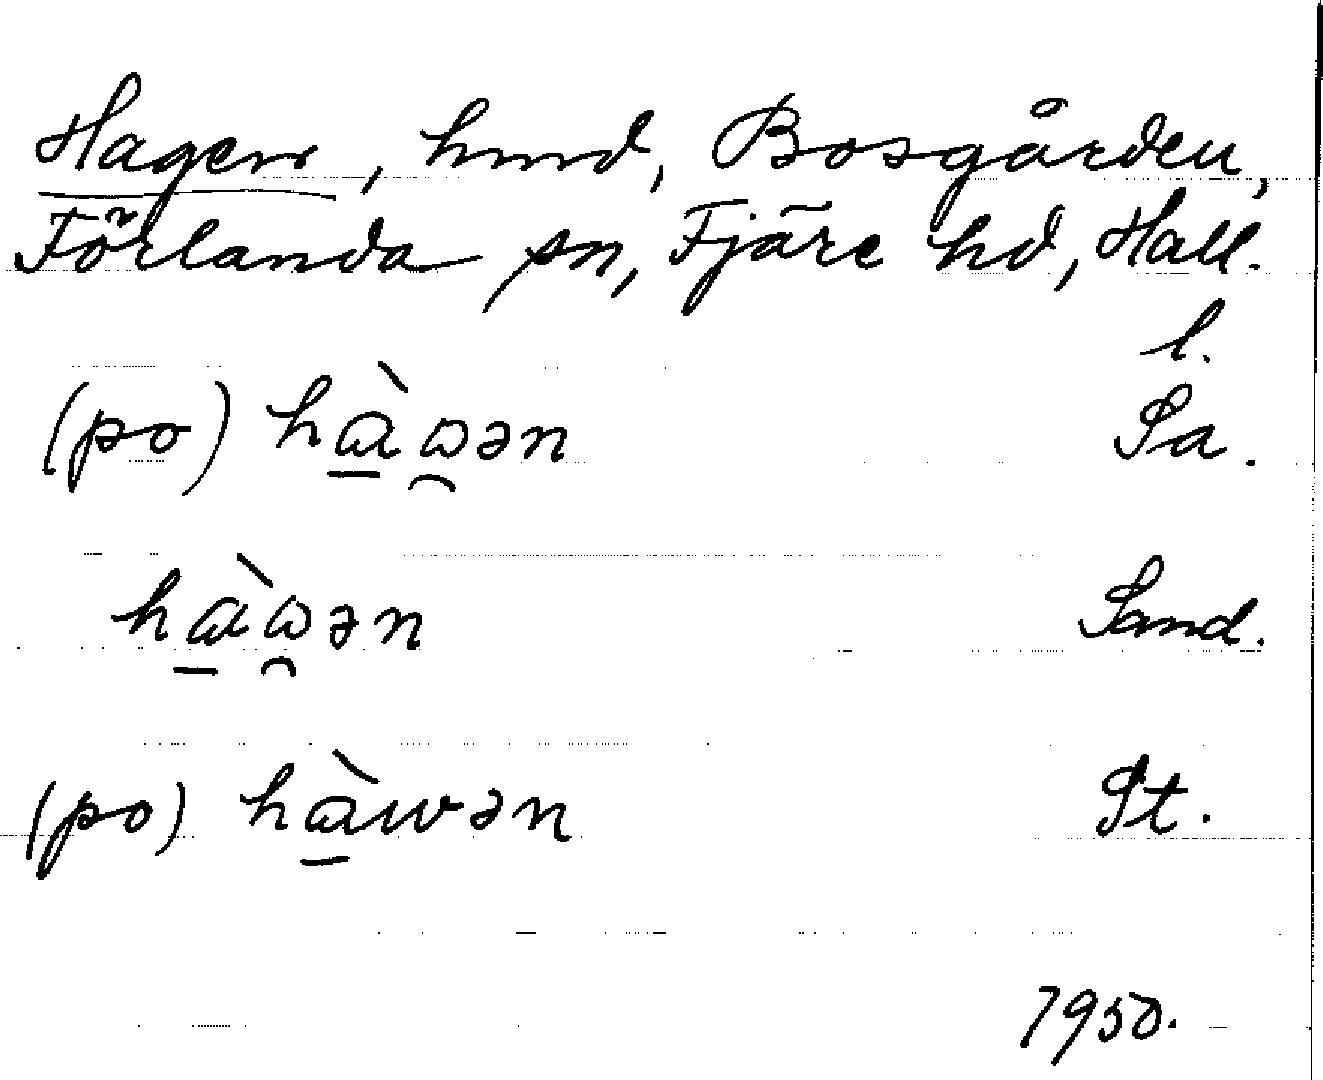 Hagen, hmd, Bosgården,
Förlanda sn, Fjäre hd, Hall.
l.
(po) hɑ̱̀ ꞷ̯ən Sa.
hɑ̱̀ ꞷ̯ən Sand.
(po) hɑ̱̀wən St.
1950.